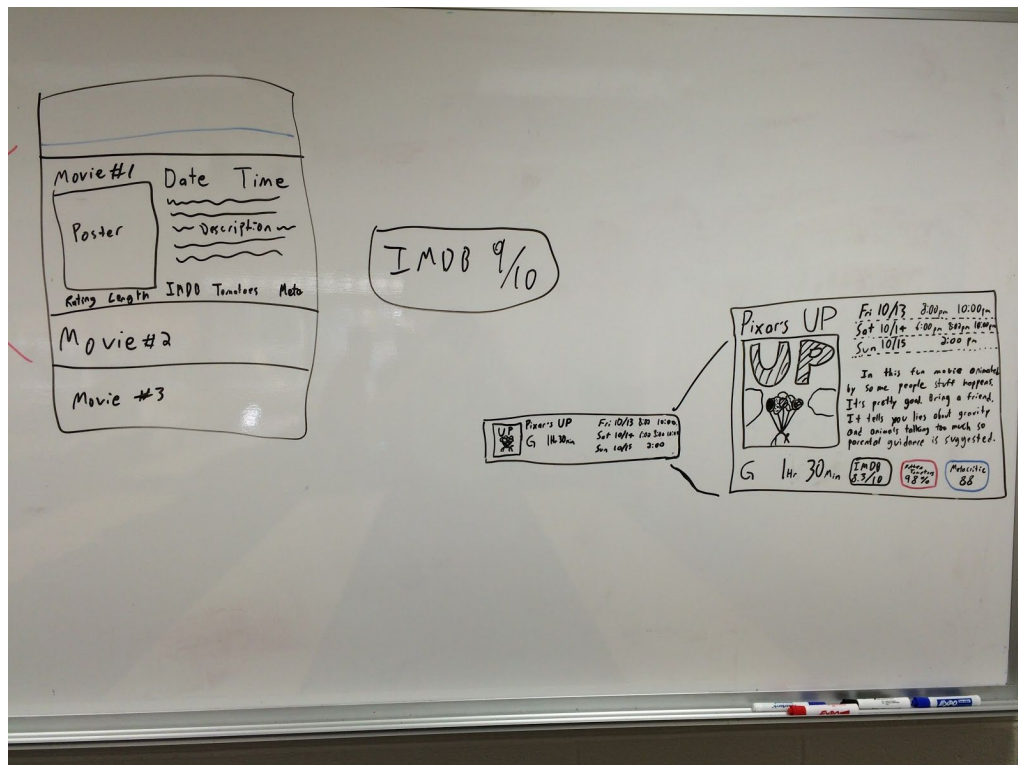 Movie #1
Date Time
Poster
~ Description ~
Rating Length IMDB Tomatoes Meta
Movie #2
Movie #3
IMDB 9/10
UP
Pixar's UP
G 1Hr 30min
Fri 10/13 8:00 10:00
Sat 10/14 6:00 8:00 10:00
Sun 10/15 2:00
Pixar's UP
UP
Fri 10/13 8:00pm 10:00pm
Sat 10/14 6:00pm 8:00pm 10:00pm
Sun 10/15 2:00 pm
In this fun movie animated
by some people stuff happens.
It's pretty good. Bring a friend.
It tells you lies about gravity
and animals talking too much so
parental guidance is suggested.
G 1Hr 30Min
IMDB
8.3/10
Rotten
Tomatoes
98%
Metacritic
88
EXPO
EXPO